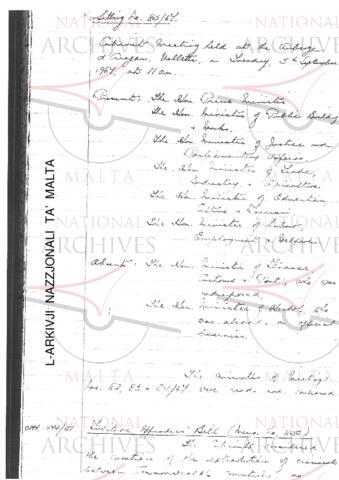 Sitting No. 85/67.
Cabinet Meeting held at the Auberge
d'Aragon, Valletta, on Tuesday, 5th September
1967, at 11 am.
Present: The Hon. Prime Minister
The Hon. Minister of Public Building
& Works.
The Hon. Minister of Justice and
Parliamentary Affairs.
The Hon. Minister of Trade,
Industry, & Agriculture
The Hon. Minister of Education,
Culture & Tourism
The Hon. Minister of Labour,
Employment & Welfare
Absent: The Hon. Minister of Finance
Customs & Port, who was
indisposed.
The Hon. Minister of Health, who
was abroad, on official
business.
The minutes of Meetings
Nos. 82, 83 & 84/67 were read and confirmed
Fugitive Offenders' Bill (Memo. No.
The Cabinet considered
the question of the extradition of criminals
between Commonwealth countries, as
L-ARKIVJI NAZZJONALI TA' MALTA
NATIONAL
ARCHIVES
MALTA
NATIONAL
ARCHIVES
MALTA
NATIONAL
ARCHIVES
MALTA
NATIONAL
ARCHIVES